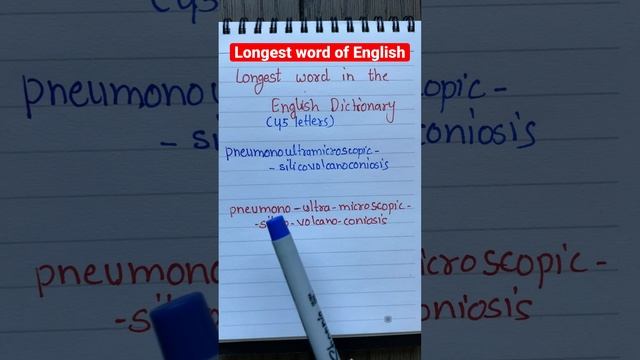 Longest word of English
Longest word in the
English Dictionary
(45 letters)
pneumonoultramicroscopic-
- silicovolcanoconiosis
pneumono-ultra-microscopic-
-silico-volcano-coniosis